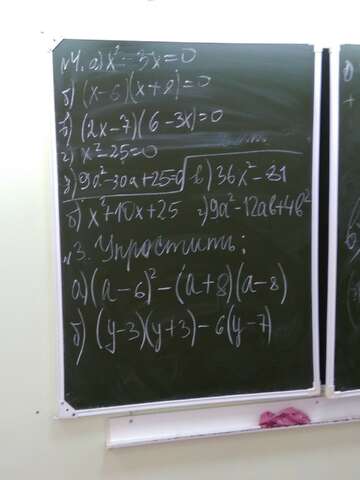 №4. а) x²-3x=0
б) (x-6)(x+8)=0
в) (2x-7)(6-3x)=0
г) x²-25=0
д) 9a²-30a+25=0 в) 36x²-81
б) x²+10x+25 г) 9a²-12ab+4b²
№3. Упростить:
а) (a-6)²-(a+8)(a-8)
б) (y-3)(y+3)-6(y-7)